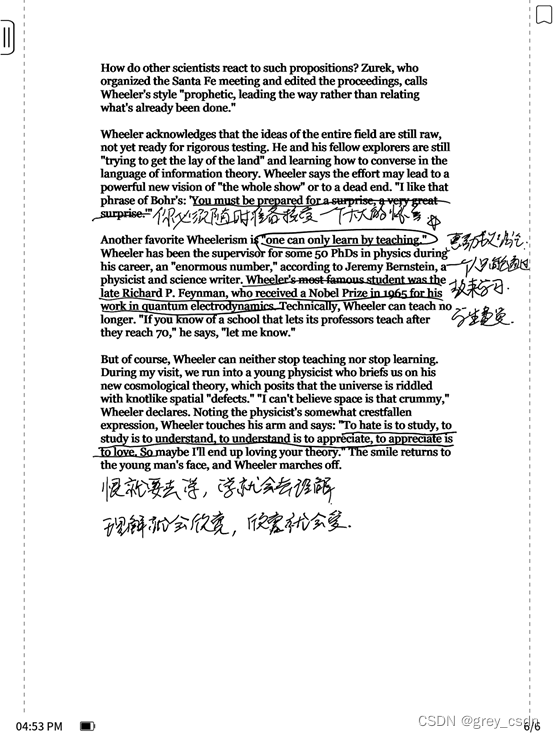 How do other scientists react to such propositions? Zurek, who
organized the Santa Fe meeting and edited the proceedings, calls
Wheeler's style "prophetic, leading the way rather than relating
what's already been done."
Wheeler acknowledges that the ideas of the entire field are still raw,
not yet ready for rigorous testing. He and his fellow explorers are still
"trying to get the lay of the land" and learning how to converse in the
language of information theory. Wheeler says the effort may lead to a
powerful new vision of "the whole show" or to a dead end. "I like that
phrase of Bohr's: 'You must be prepared for a surprise, a very great
surprise.'"
你必须随时准备接受一个大大的
Another favorite Wheelerism is "one can only learn by teaching."
Wheeler has been the supervisor for some 50 PhDs in physics during
his career, an "enormous number," according to Jeremy Bernstein, a
physicist and science writer. Wheeler's most famous student was the
late Richard P. Feynman, who received a Nobel Prize in 1965 for his
work in quantum electrodynamics. Technically, Wheeler can teach no
longer. "If you know of a school that lets its professors teach after
they reach 70," he says, "let me know."
一人只能通过
教来学习.
But of course, Wheeler can neither stop teaching nor stop learning.
During my visit, we run into a young physicist who briefs us on his
new cosmological theory, which posits that the universe is riddled
with knotlike spatial "defects." "I can't believe space is that crummy,"
Wheeler declares. Noting the physicist's somewhat crestfallen
expression, Wheeler touches his arm and says: "To hate is to study, to
study is to understand, to understand is to appreciate, to appreciate is
to love. So maybe I'll end up loving your theory." The smile returns to
the young man's face, and Wheeler marches off.
恨就要去学，学就会去理解
理解就会欣赏，欣赏就会爱.
04:53 PM
6/6
CSDN @grey_csdn